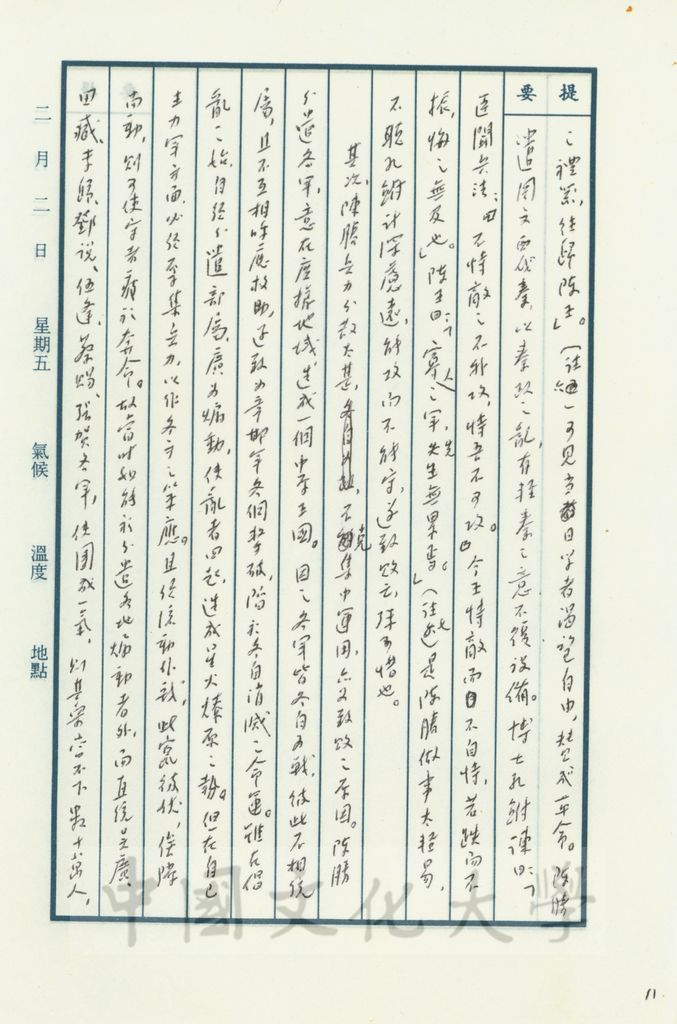 提要
之禮器,往歸陳王。」(註一)可見當日學者渴望自由,贊成革命。陳勝
嘗遣周文西伐秦,以秦政之亂,有輕秦之意,不復設備。博士孔鮒諫曰:「
臣聞兵法:『不恃敵之不我攻,恃吾不可攻。』今王恃敵而不自恃,若跌而不
振,悔之無及也。」陳王曰:「寡人之軍,先生無累焉。」(註二)此是陳勝做事太輕易,
不聽孔鮒計深慮遠,能攻而不能守,遂致敗亡,殊可惜也。
其次,陳勝兵力分散太甚,不克集中運用,亦為致敗之原因。陳勝
分遣各軍,意在廣據地域,造成一個中原王國。因之各軍皆各自為戰,彼此不相統
屬,且不互相呼應救助,遂致為章邯軍各個擊破,陷於各自消滅之命運。雖在倡
亂之始,自須分遣部屬,廣為煽動,使亂者四起,造成星火燎原之勢。但在自己
主力軍方面,必須厚集兵力,以作各方之策應。且須滾動作戰,此竄彼伏,俟隙
而動,則可使守者疲於奔命。故當時如能於分遣各地煽動者外,而直統吳廣、
田臧、李歸、鄧說、伍逢、蔡賜、張賀各軍,使團成一氣,則其眾當不下數十萬人,
二月二日 星期五 氣候 溫度 地點
中國文化大學
11